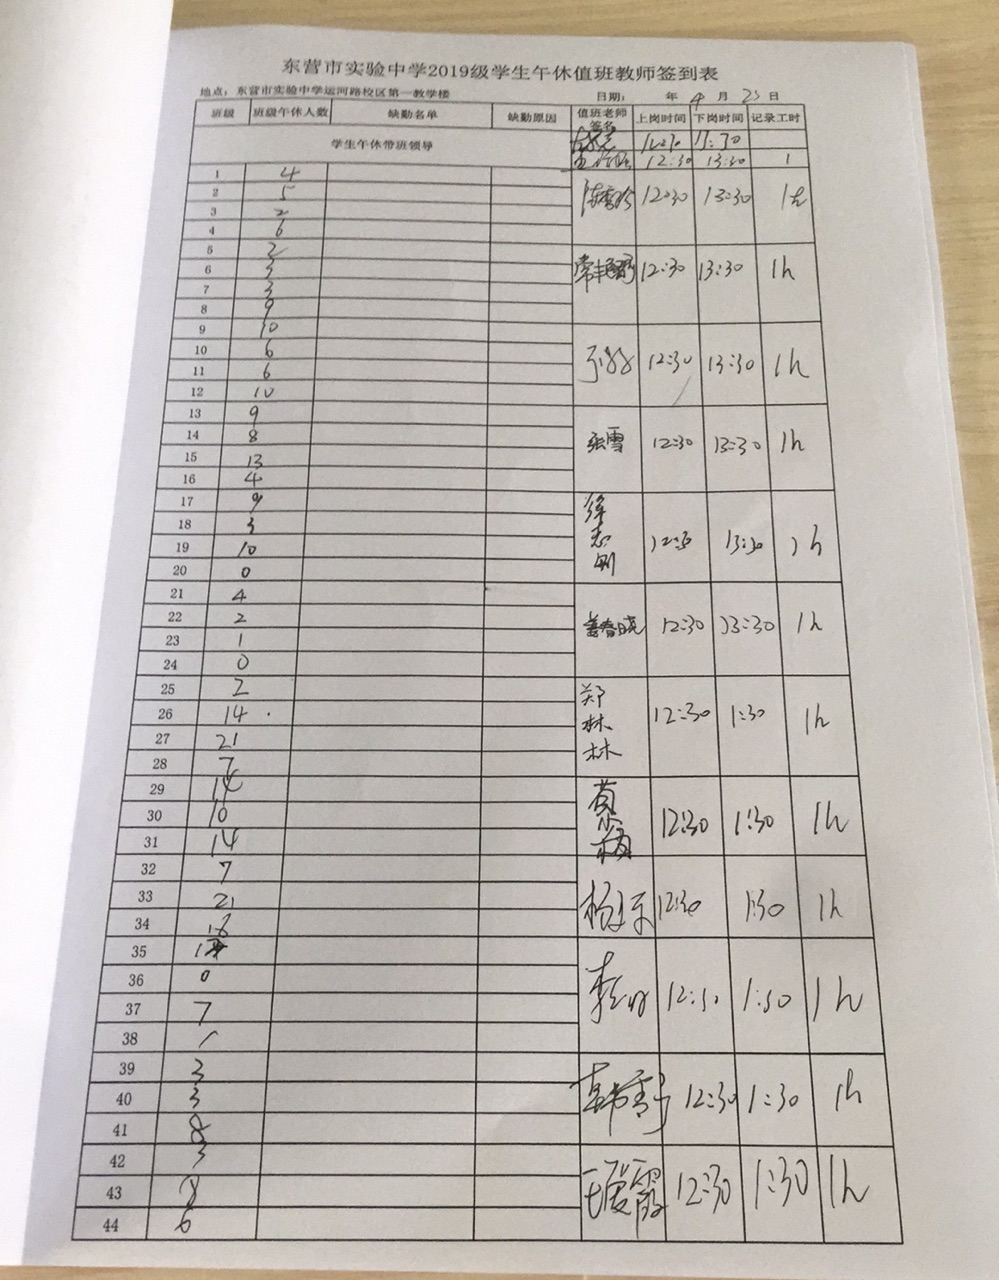 东营市实验中学2019级学生午休值班教师签到表
地点：东营市实验中学运河路校区第一教学楼 日期： 年 4 月 23 日
班级 班级午休人数 缺勤名单 缺勤原因 值班老师签名 上岗时间 下岗时间 记录工时
学生午休带班领导 12:30 13:30
12:30 13:30 1
1 4
2 5 12:30 13:30
3 2
4 6
5 2
6 3 12:30 13:30 1h
7 3
8 9
9 10
10 6
11 6 12:30 13:30 1h
12 10
13 9
14 8 张雪 12:30 13:30 1h
15 13
16 4
17 9
18 3
19 10 徐志刚 13:30 1h
20 0
21 4
22 2 姜春晓 12:30 13:30 1h
23 1
24 0
25 2
26 14 郑林林 12:30 1:30 1h
27 21
28 7
29 14
30 10 12:30 1:30 1h
31 14
32 7
33 21 12:30 1:30 1h
34 18
35
36 0
37 7 12:30 1:30 1h
38 1
39 3
40 3 12:30 1:30 1h
41 8
42 3
43 8 王爱霞 12:30 1:30 1h
44 6